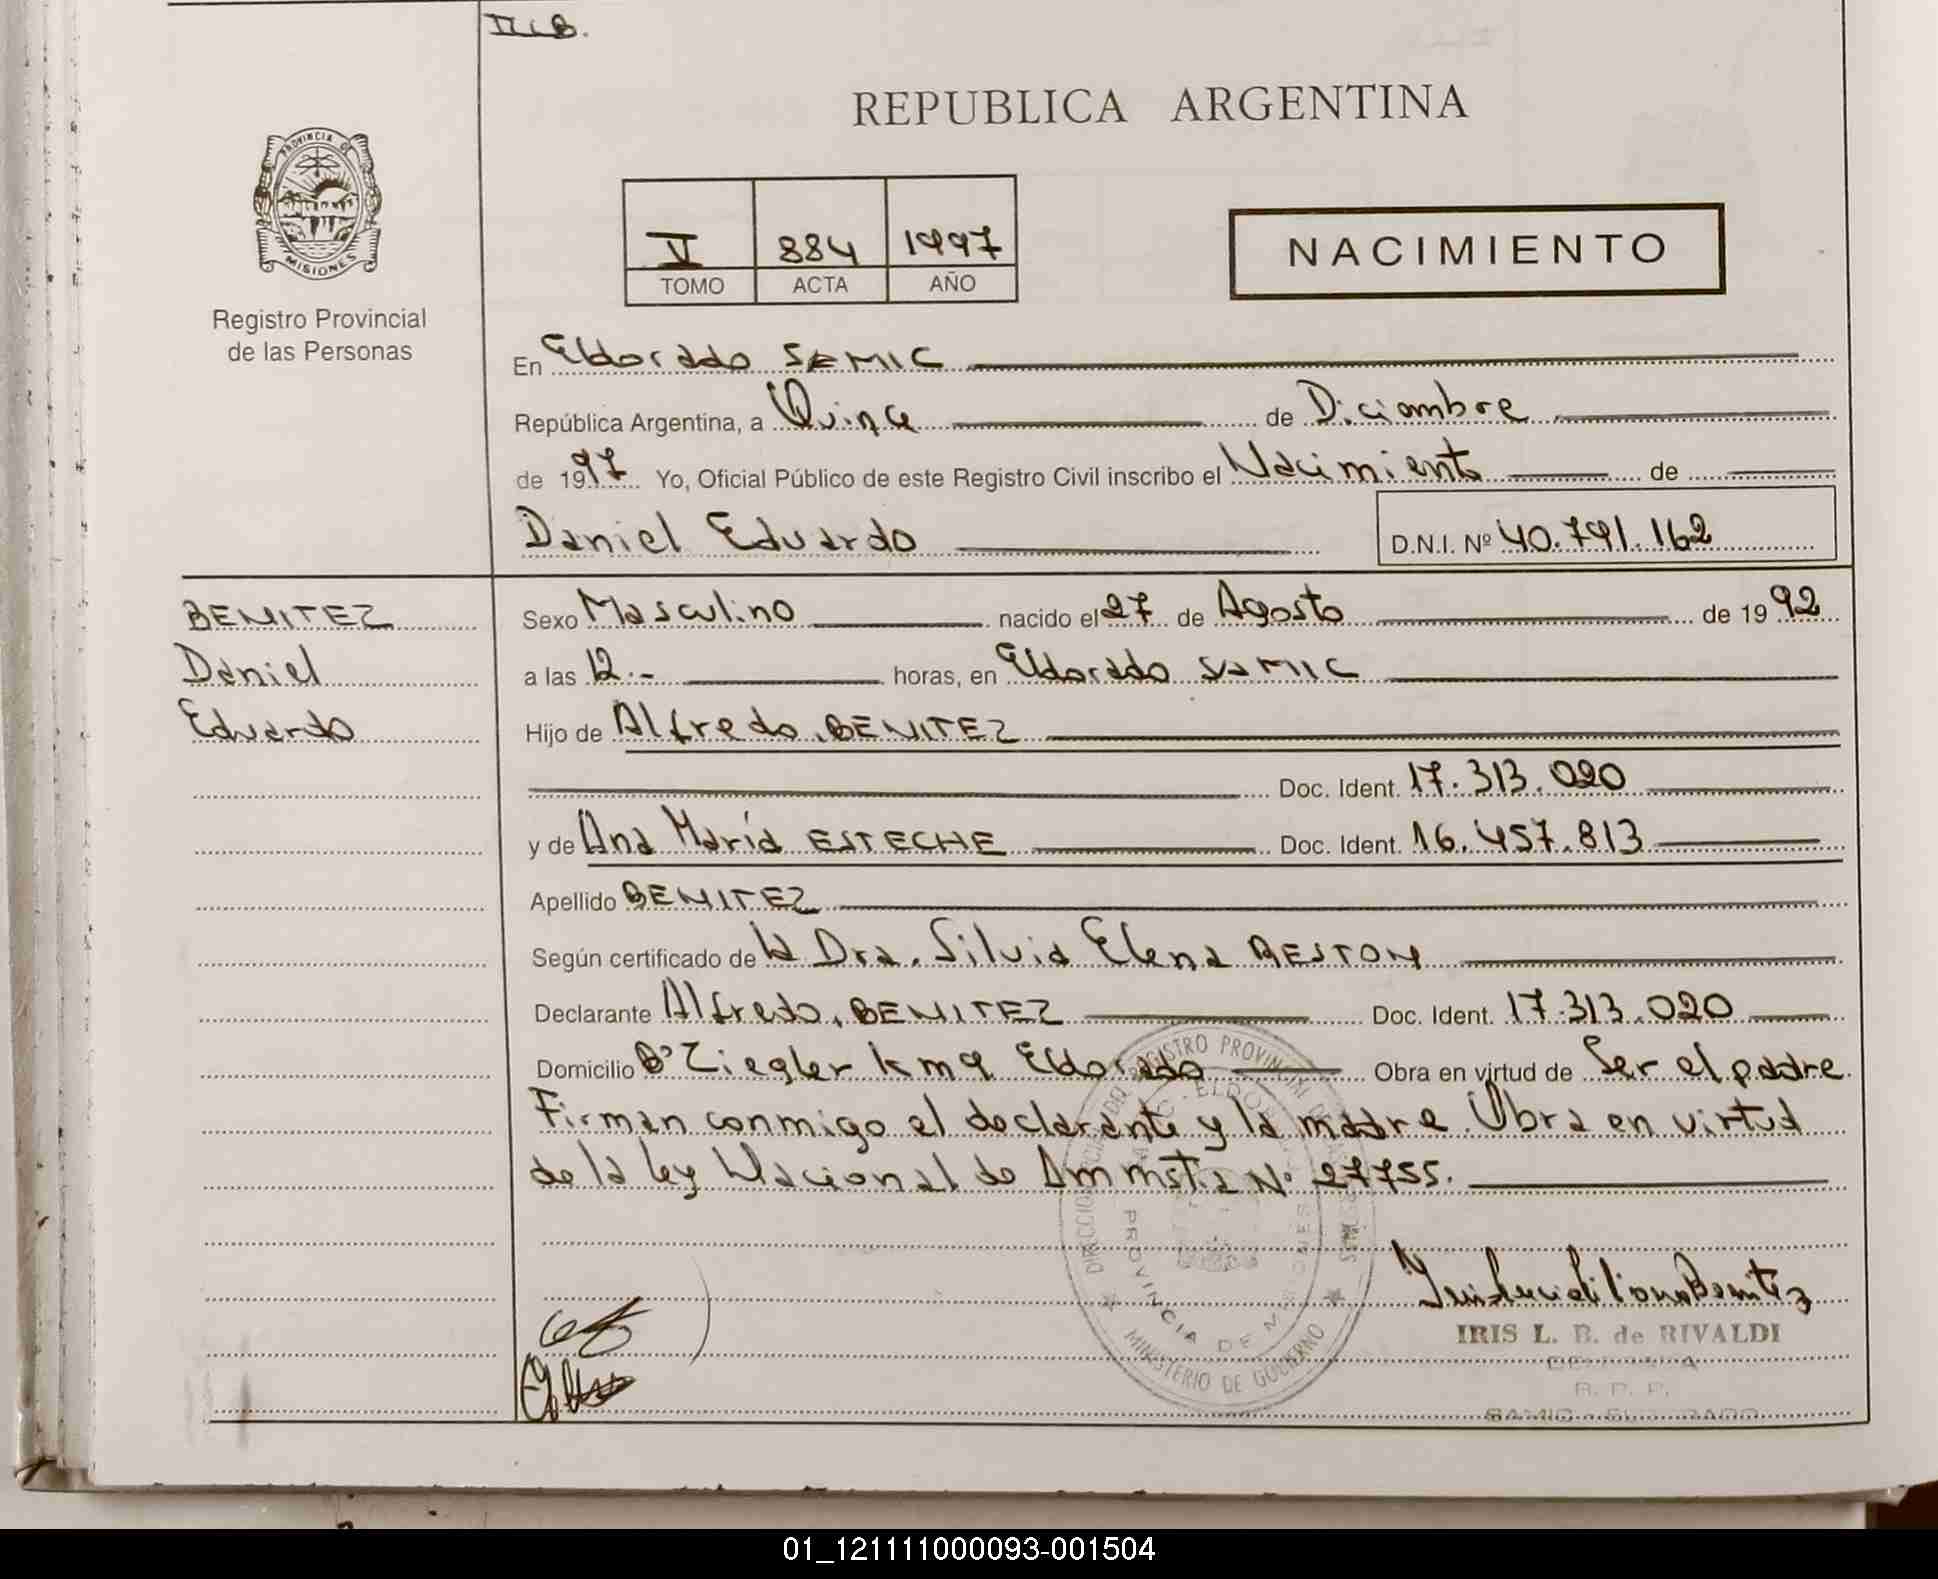 II LB.
REPUBLICA ARGENTINA
PROVINCIA DE MISIONES
Registro Provincial
de las Personas
V 884 1997
TOMO ACTA AÑO
NACIMIENTO
En Eldorado SAMIC
República Argentina, a Quince de Diciembre
de 1997 Yo, Oficial Público de este Registro Civil inscribo el Nacimiento de
Daniel Eduardo D.N.I. Nº 40.791.162
BENITEZ
Daniel
Eduardo
Sexo Masculino nacido el 27 de Agosto de 1992
a las 12.- horas, en Eldorado SAMIC
Hijo de Alfredo BENITEZ
Doc. Ident. 17.313.020
y de Ana María ESTECHE Doc. Ident. 16.457.813
Apellido BENITEZ
Según certificado de la Dra. Silvia Elena BESTON
Declarante Alfredo BENITEZ Doc. Ident. 17.313.020
Domicilio Bº Ziegler km 9 Eldorado Obra en virtud de Ser el padre
Firman conmigo el declarante y la madre. Obra en virtud
de la ley Nacional de Amnistia Nº 24755.
REGISTRO PROVINCIAL DE LAS PERSONAS
SAMIC - ELDORADO
PROVINCIA DE MISIONES
MINISTERIO DE GOBIERNO
IRIS L. B. de RIVALDI
R. P. P.
SAMIC - ELDORADO
01_121111000093-001504